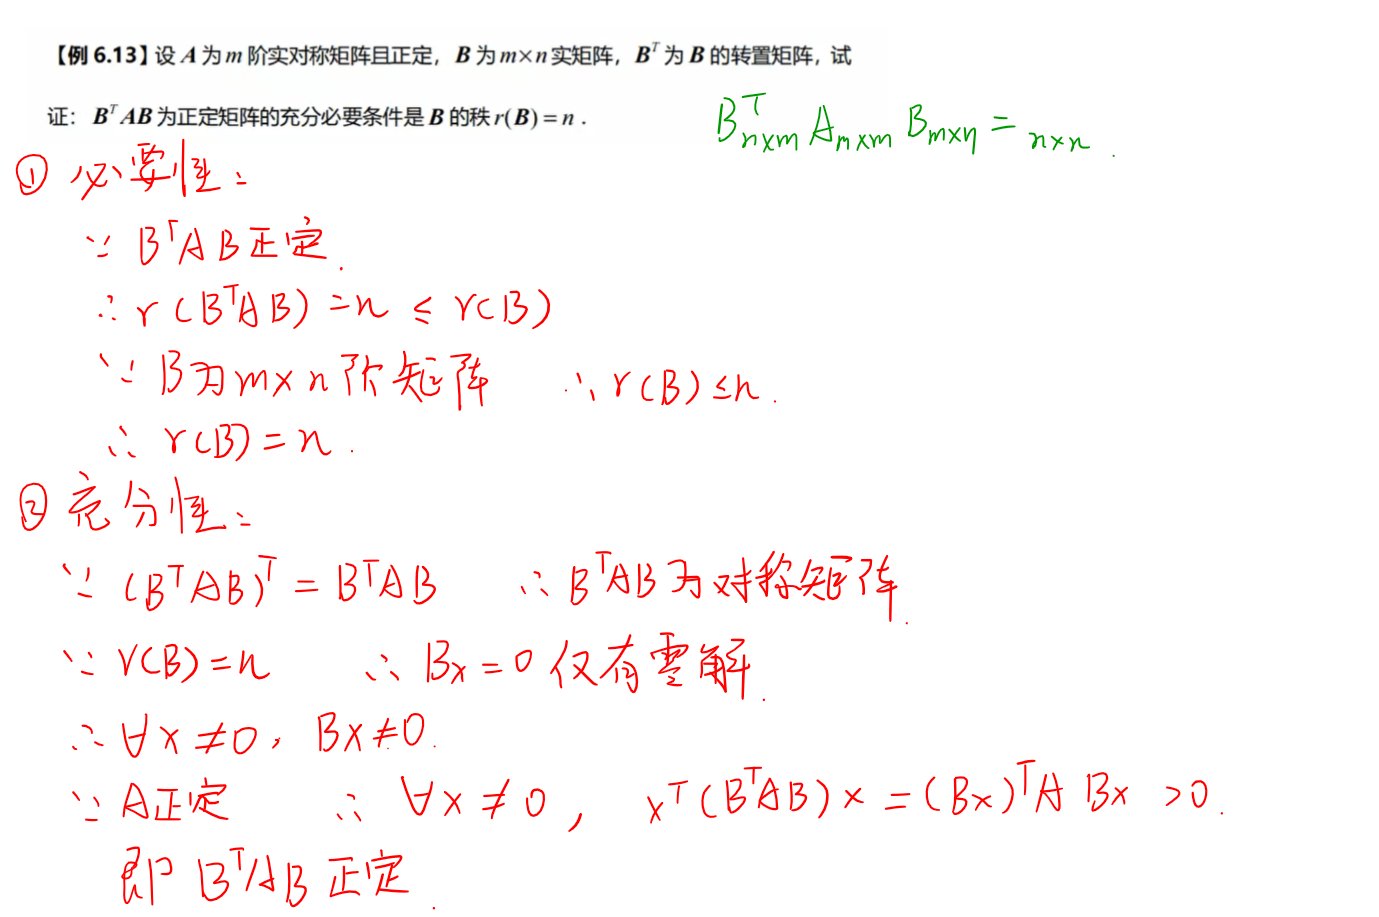 【例 6.13】设 A 为 m 阶实对称矩阵且正定，B 为 m×n 实矩阵，Bᵀ 为 B 的转置矩阵，试
证：BᵀAB 为正定矩阵的充分必要条件是 B 的秩 r(B) = n .
Bᵀn×m Am×m Bm×n = n×n .
① 必要性：
∵ BᵀAB正定.
∴ r(BᵀAB) = n ≤ r(B)
∵ B为m×n阶矩阵 ∴ r(B) ≤ n .
∴ r(B) = n .
② 充分性：
∵ (BᵀAB)ᵀ = BᵀAB ∴ BᵀAB为对称矩阵.
∵ r(B) = n ∴ Bx = 0 仅有零解.
∴ ∀x ≠ 0, Bx ≠ 0.
∵ A正定 ∴ ∀x ≠ 0, xᵀ(BᵀAB)x = (Bx)ᵀA Bx > 0.
即 BᵀAB 正定.